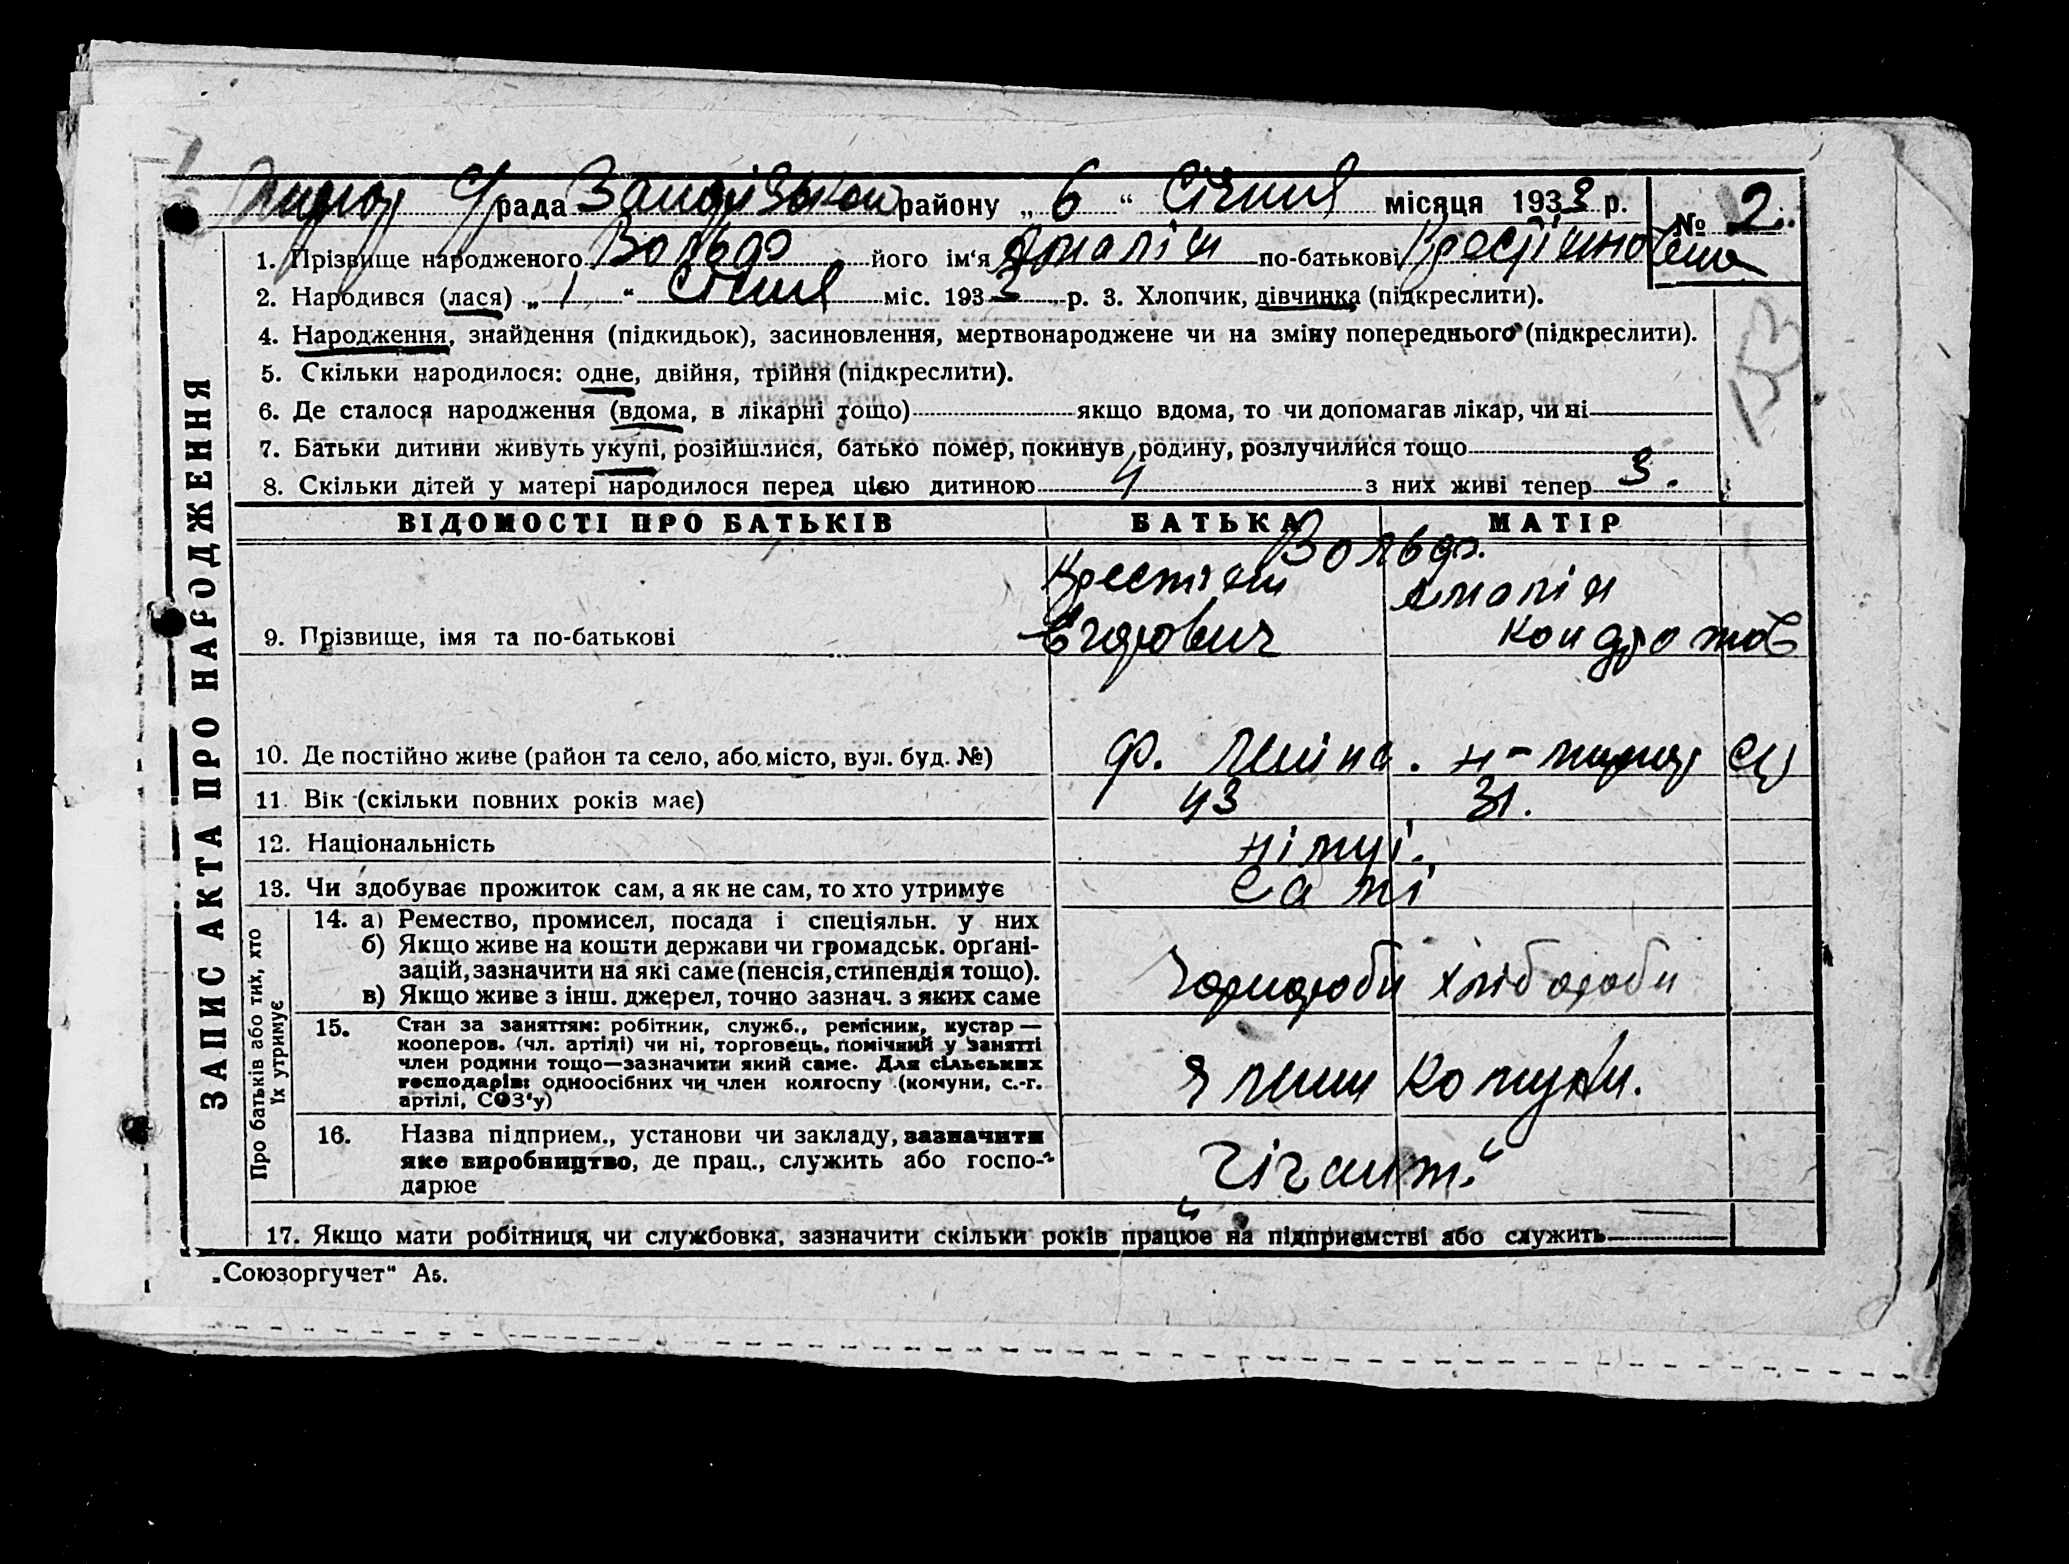 рада Запорізького району „ 6 “ Січня місяця 1933 р. № 2.
1. Прізвище народженого Вольф його ім‘я Амалія по-батькові
2. Народився (лася) „ 1 “ Січня міс. 1933 р. 3. Хлопчик, дівчинка (підкреслити).
4. Народження, знайдення (підкидьок), засиновлення, мертвонароджене чи на зміну попереднього (підкреслити).
5. Скільки народилося: одне, двійня, трійня (підкреслити).
6. Де сталося народження (вдома, в лікарні тощо) якщо вдома, то чи допомагав лікар, чи ні
7. Батьки дитини живуть укупі, розійшлися, батько помер, покинув родину, розлучилися тощо
8. Скільки дітей у матері народилося перед цією дитиною 4 з них живі тепер 3.
ЗАПИС АКТА ПРО НАРОДЖЕННЯ
ВІДОМОСТІ ПРО БАТЬКІВ БАТЬКА МАТІР
Вольф.
Крестіян Амалія
9. Прізвище, імя та по-батькові Єгорович Кондратов
10. Де постійно живе (район та село, або місто, вул. буд. №)
11. Вік (скільки повних років має) 43 31.
12. Національність німці.
13. Чи здобуває прожиток сам, а як не сам, то хто утримує самі
Про батьків або тих, хто
їх утримує
14. а) Ремество, промисел, посада і спеціяльн. у них
б) Якщо живе на кошти держави чи громадськ. орґані-
зацій, зазначити на які саме (пенсія, стипендія тощо).
в) Якщо живе з інш. джерел, точно зазнач. з яких саме
Чорнороби хлібороби
15. Стан за заняттям: робітник, служб., ремісник, кустар —
кооперов. (чл. артілі) чи ні, торговець, помічний у занятті
член родини тощо—зазначити який саме. Для сільських
господарів: одноосібних чи член колгоспу (комуни, с.-г.
артілі, СОЗ'у)
Члени комуни.
16. Назва підприєм., установи чи закладу, зазначити
яке виробництво, де прац., служить або госпо-
дарює
„Гігант“
17. Якщо мати робітниця чи службовка, зазначити скільки років працює на підприємстві або служить
„Союзоргучет“ А5.